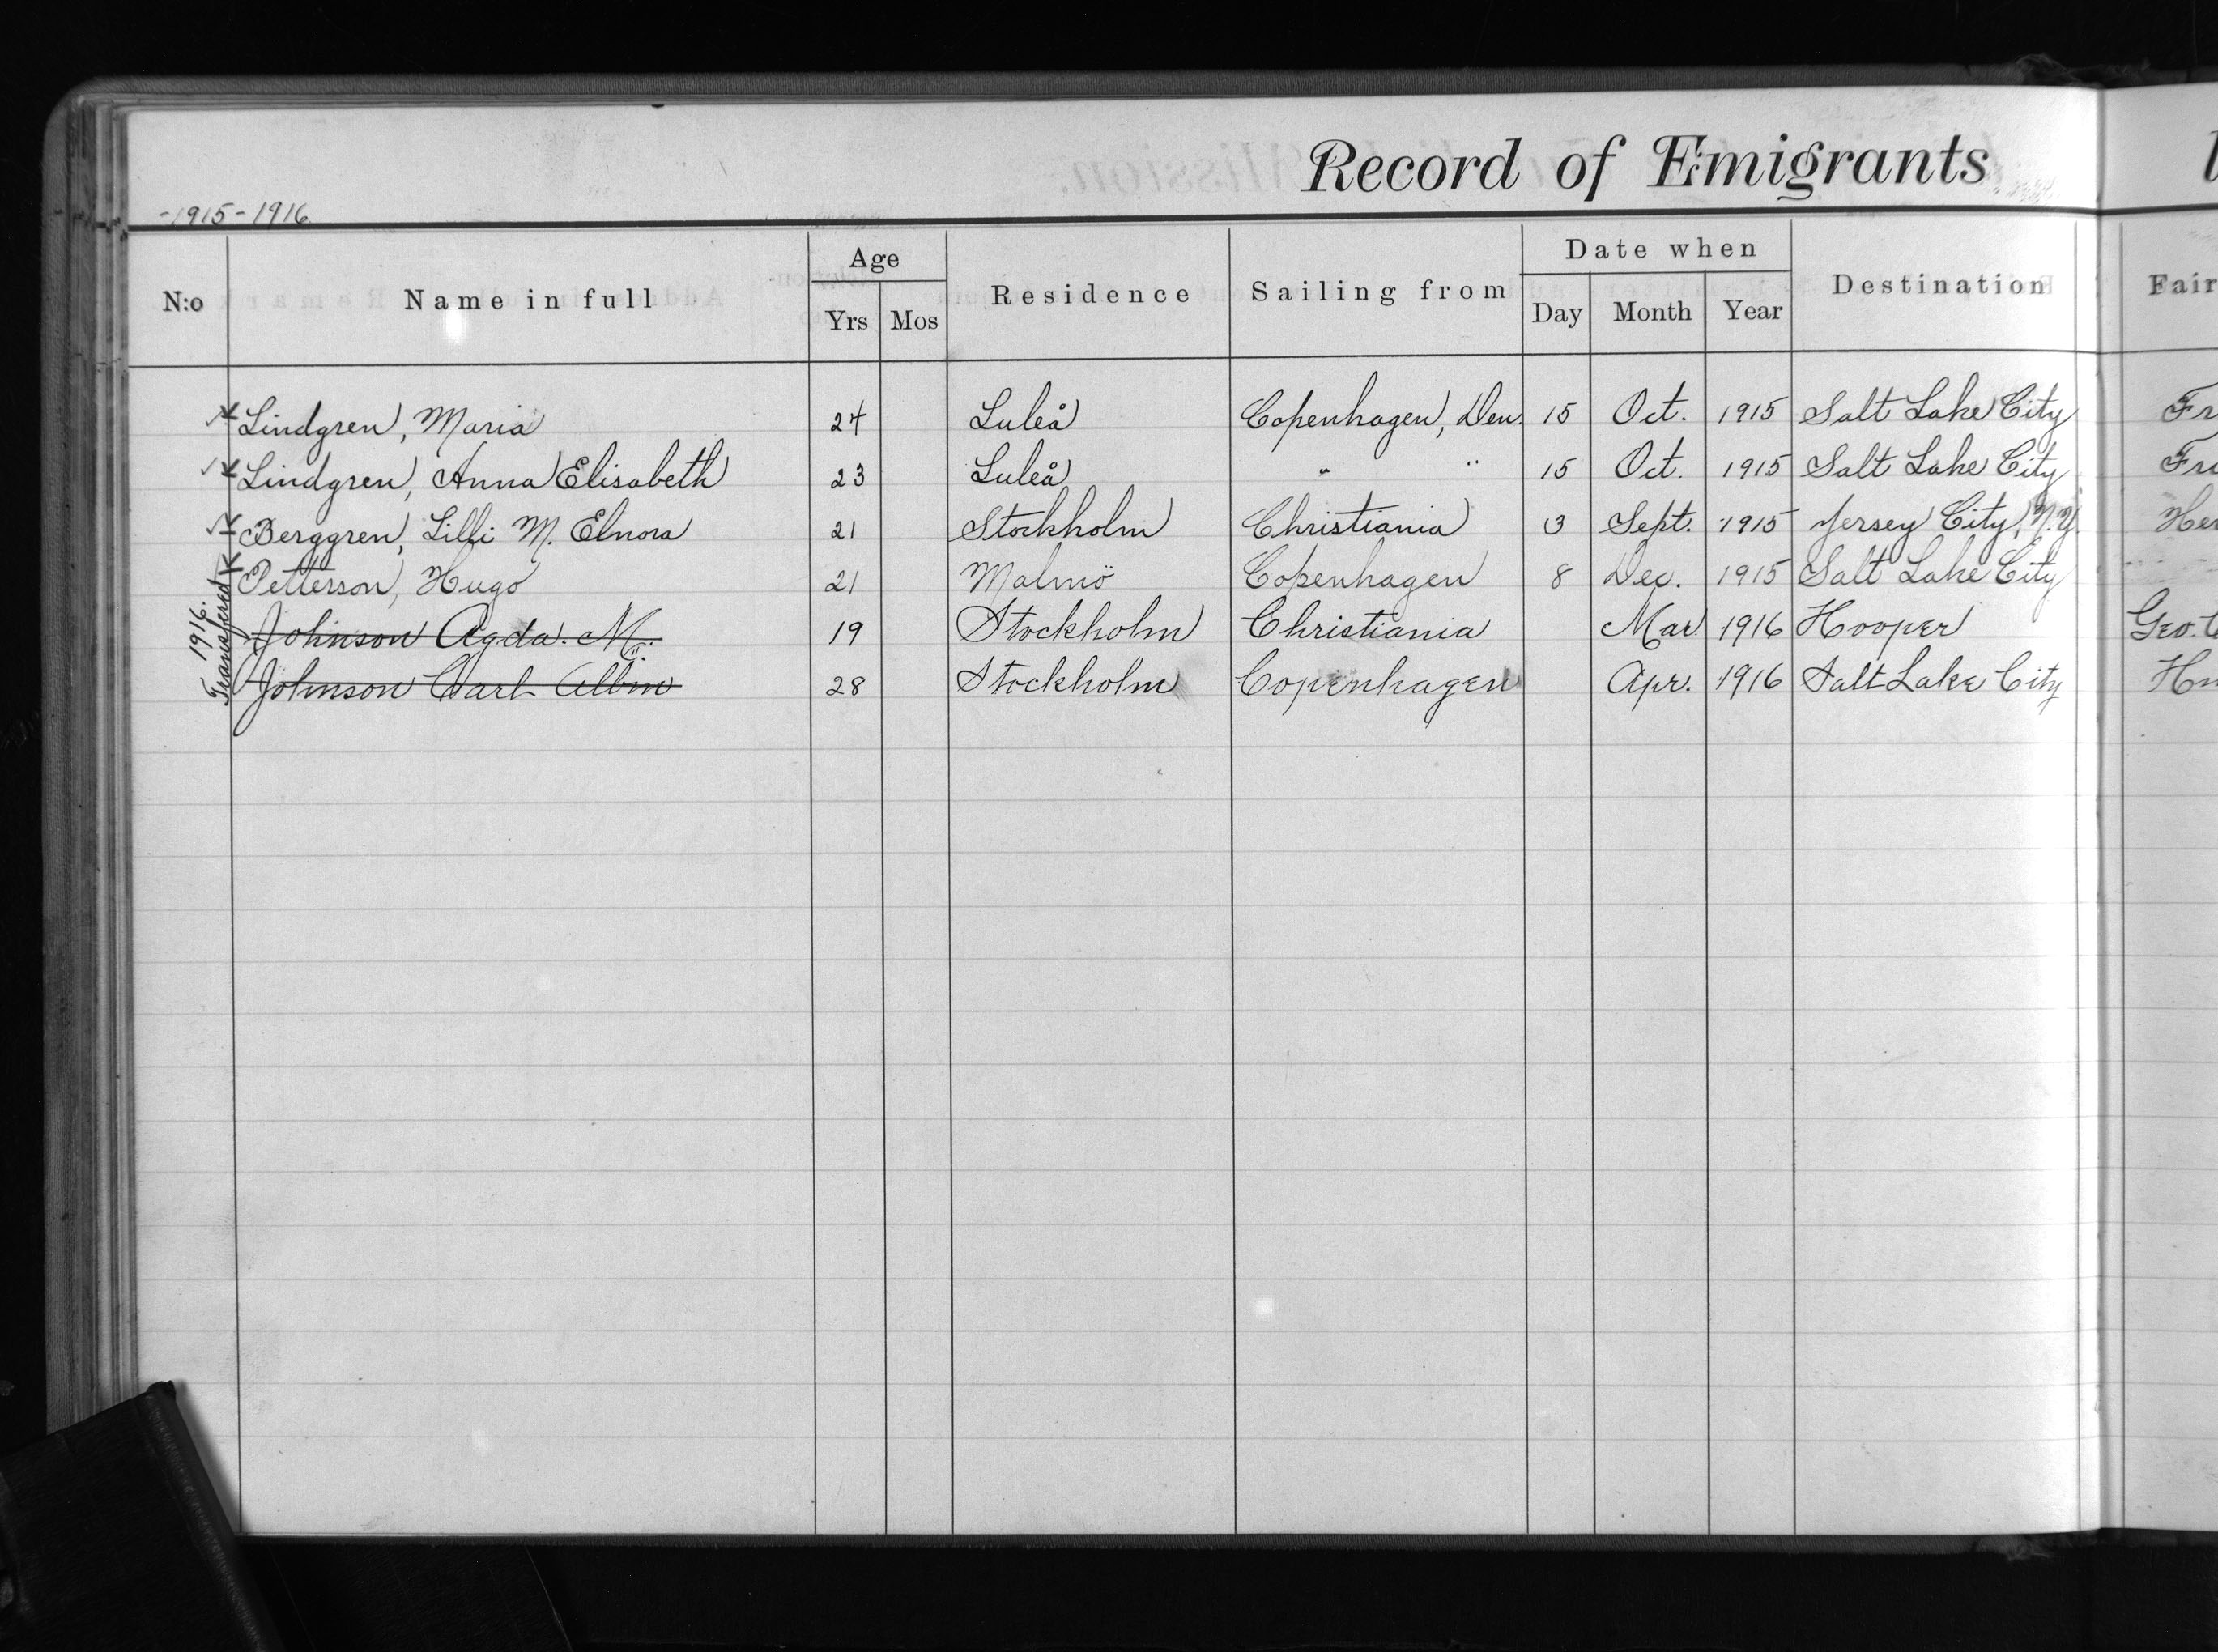 Record of Emigrants
-1915-1916
N:o Name in full Age Yrs Mos Residence Sailing from Date when Day Month Year Destination Fair
Lindgren, Maria 24 Luleå Copenhagen, Den. 15 Oct. 1915 Salt Lake City Fr
Lindgren, Anna Elisabeth 23 Luleå " " 15 Oct. 1915 Salt Lake City
Berggren, Lilli M. Elnora 21 Stockholm Christiania 3 Sept. 1915 Jersey City, N.Y. Her
Petterson, Hugo 21 Malmö Copenhagen 8 Dec. 1915 Salt Lake City
1916.
Transfered
Johnson Agda. M. 19 Stockholm Christiania Mar 1916 Hooper Geo.
Johnson Carl Albin 28 Stockholm Copenhagen Apr. 1916 Salt Lake City